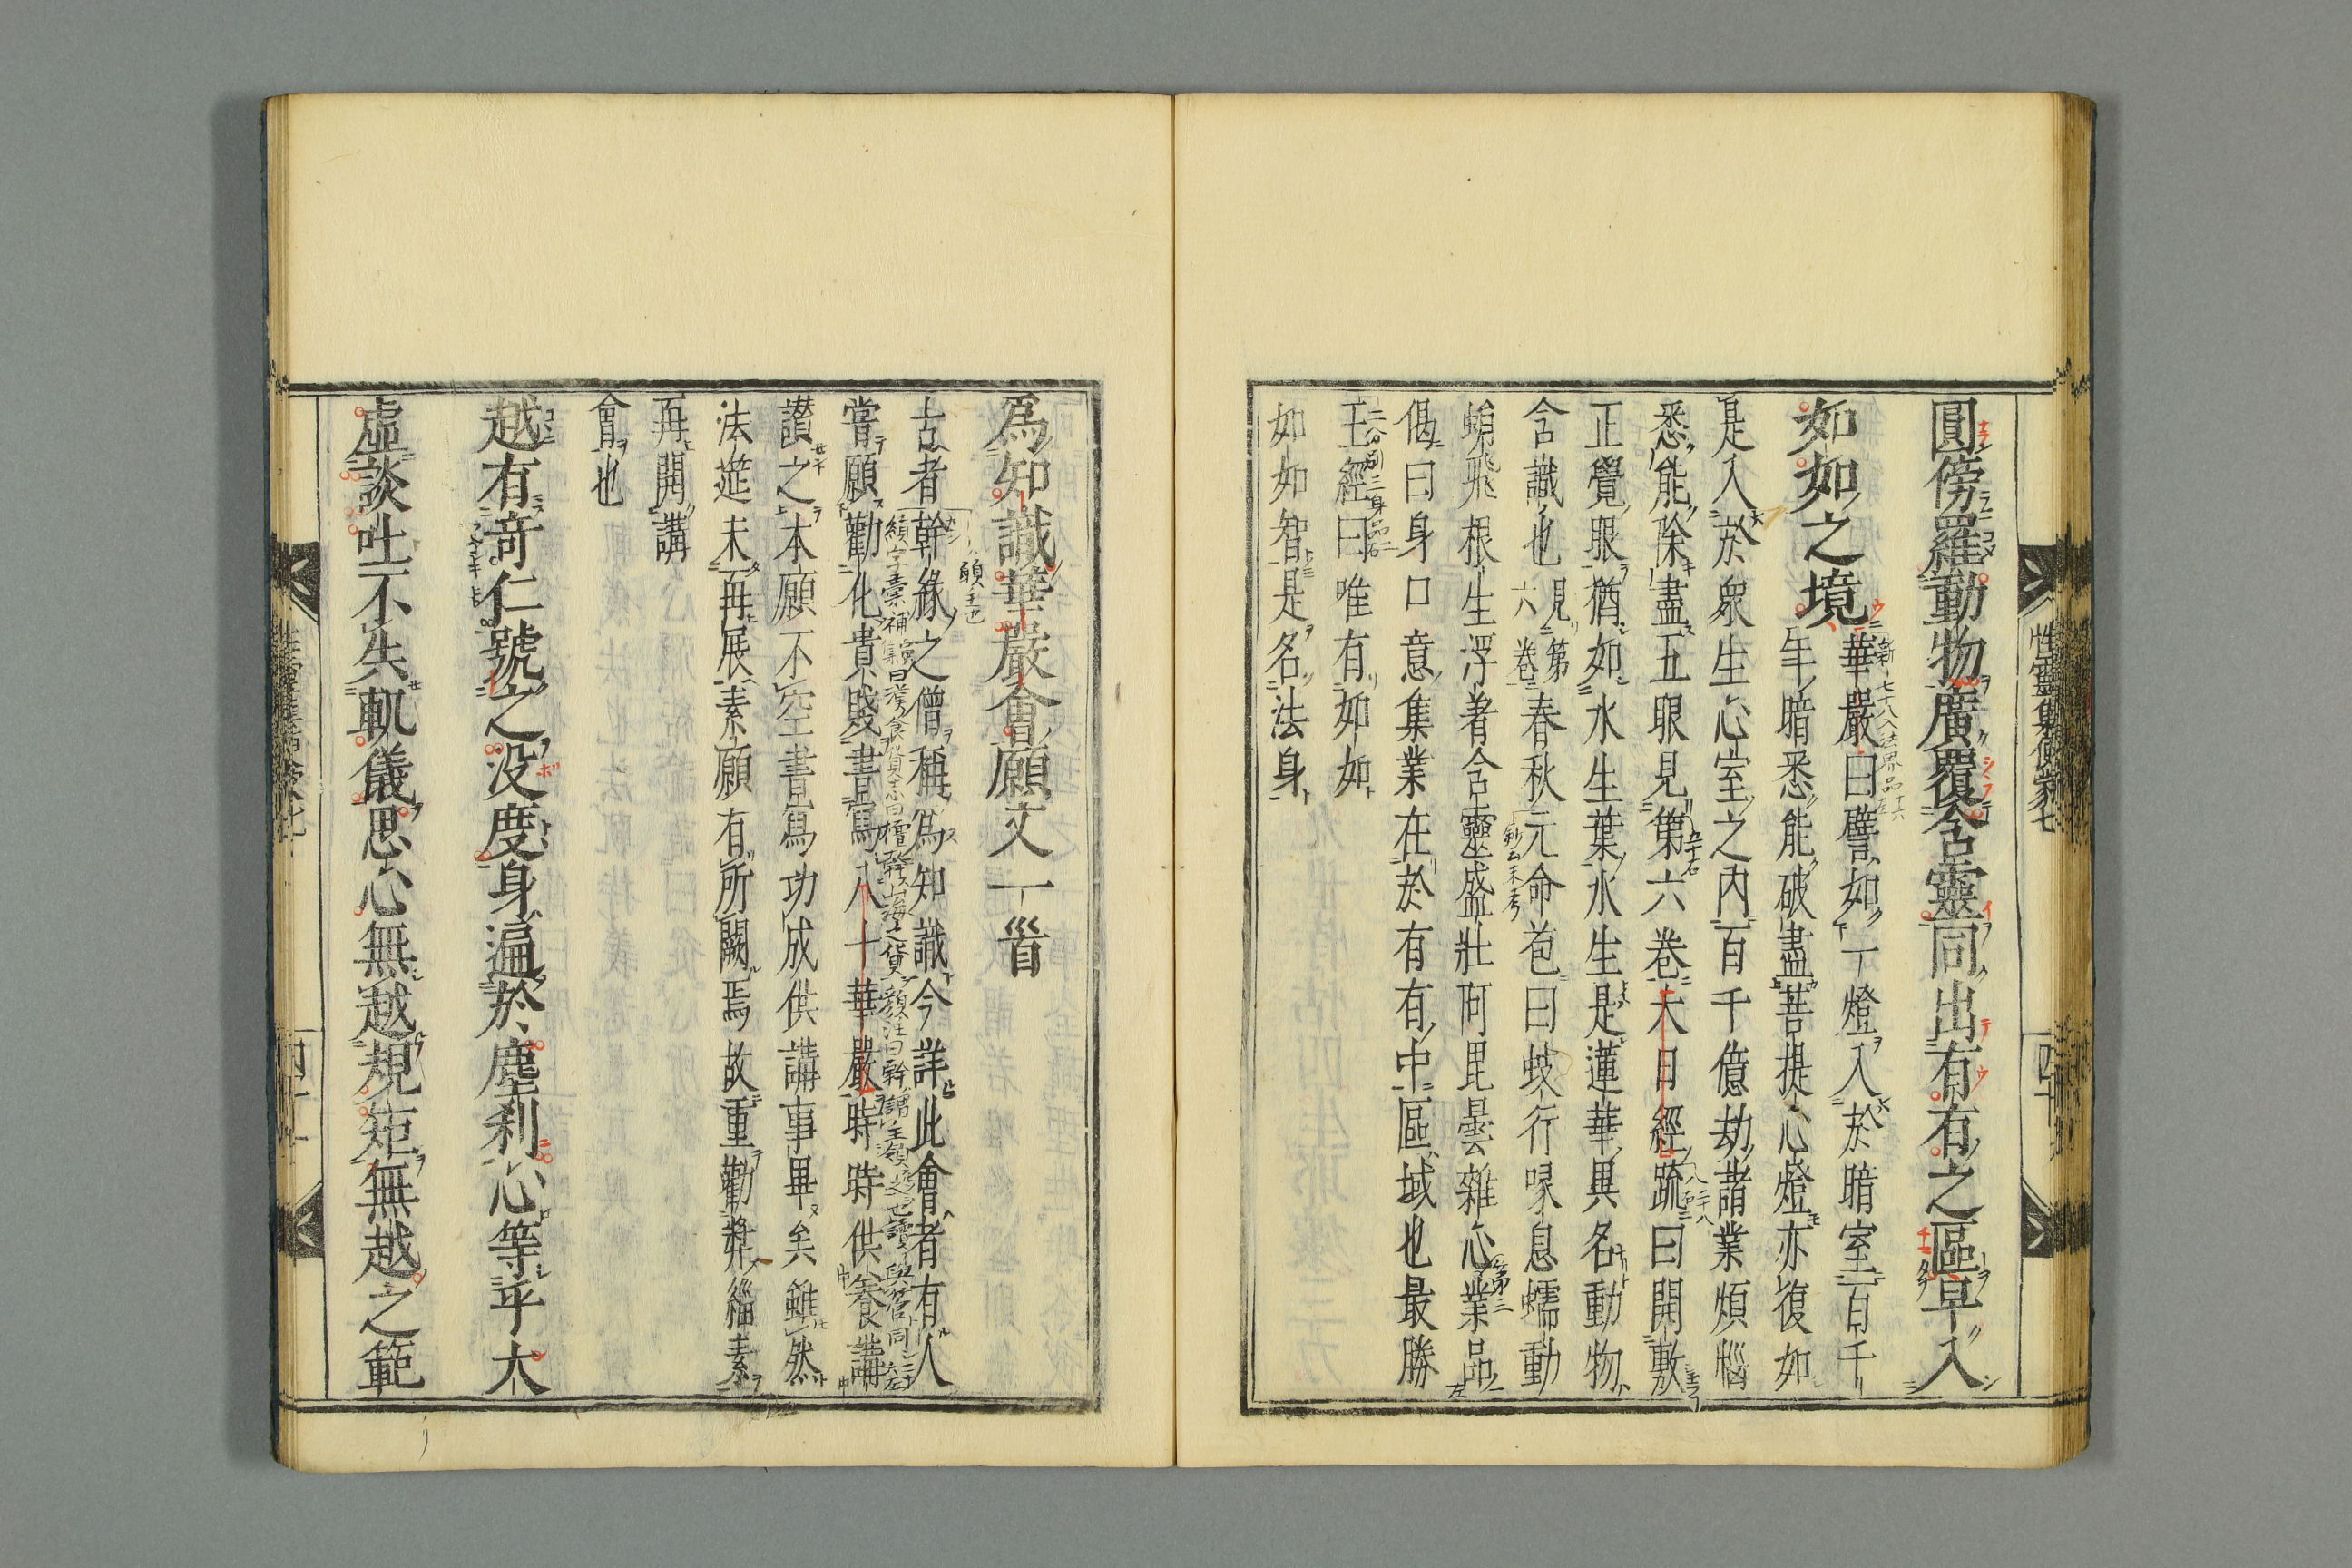 性靈集便蒙七
圓傍羅動物廣覆含靈同出有有之區早入
如如之境
華嚴曰譬如一燈入於暗室百千
年暗悉能破盡菩提心燈亦復如
是入於衆生心室之內百千億劫諸業煩惱
悉能除盡五眼見第六卷大日經疏曰開敷
正覺眼猶如水生葉水生是蓮華異名動物
含識也見第六卷春秋元命苞曰蚑行喙息蠕動
蜎飛根生浮著含靈盛壯阿毘曇雜心業品
偈曰身口意集業在於有有中區域也最勝
王經曰唯有如如
如如智是名法身
爲知識華嚴會願文一首
古者幹緣之僧稱爲知識今詳此會者有人
嘗願勸化貴賤書寫八十華嚴時時供養講
讃之本願不空書寫功成供講事畢矣雖然
法莚未再展素願有所闕焉故重勸奬緇素
再開講
會也
越有奇仁號之没度身遍於塵刹心等乎太
虛談吐不失軌儀思心無越規矩無越之範